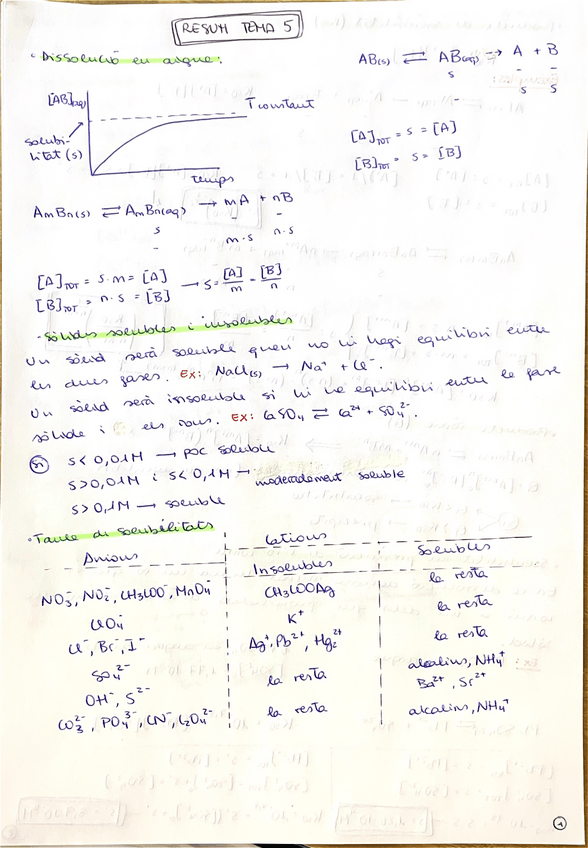 RESUM TEMA 5
· Dissolució en aigua:
AB(s) ⇄ AB(aq) → A + B
s s s
[AB](aq)
T constant
solubi-
litat (s)
temps
[A]TOT = s = [A]
[B]TOT = s = [B]
AmBn(s) ⇄ AmBn(aq) → mA + nB
s m·s n·s
[A]TOT = s·m = [A]
[B]TOT = n·s = [B] → s = [A]/m = [B]/n
- Sòlids solubles i insolubles
Un sòlid serà soluble quan no hi hagi equilibri entre
les dues fases. Ex: NaCl(s) → Na⁺ + Cl⁻.
Un sòlid serà insoluble si hi ha equilibri entre la fase
sòlida i els ions. Ex: CaSO₄ ⇄ Ca²⁺ + SO₄²⁻.
Si s < 0,01M → poc soluble
s > 0,01M i s < 0,1M → moderadament soluble
s > 0,1M → soluble
· Taula de solubilitats
Cations
Anions Insolubles Solubles
NO₃⁻, NO₂⁻, CH₃COO⁻, MnO₄⁻ CH₃COOAg la resta
ClO₄⁻ K⁺ la resta
Cl⁻, Br⁻, I⁻ Ag⁺, Pb²⁺, Hg₂²⁺ la resta
SO₄²⁻
OH⁻, S²⁻ la resta alcalins, NH₄⁺
Ba²⁺, Sr²⁺
CO₃²⁻, PO₄³⁻, CN⁻, C₂O₄²⁻ la resta alcalins, NH₄⁺
1